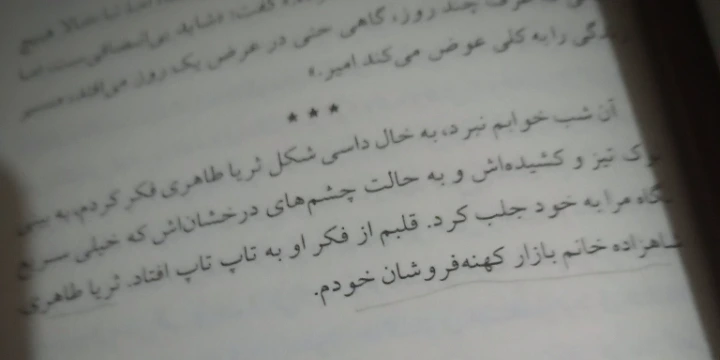 گفت: «شاید بی‌انصافی‌ست، اما
چند روز، گاهی حتی در عرض یک روز می‌افتد، مسیر
را به کلی عوض می‌کند امیر.»
***
آن شب خوابم نبرد، به خال داسی شکل ثریا طاهری فکر کردم، به بینی
نوک تیز و کشیده‌اش و به حالت چشم‌های درخشان‌اش که خیلی سریع
نگاه مرا به خود جلب کرد. قلبم از فکر او به تاپ تاپ افتاد. ثریا طاهری
شاهزاده خانم بازار کهنه‌فروشان خودم.